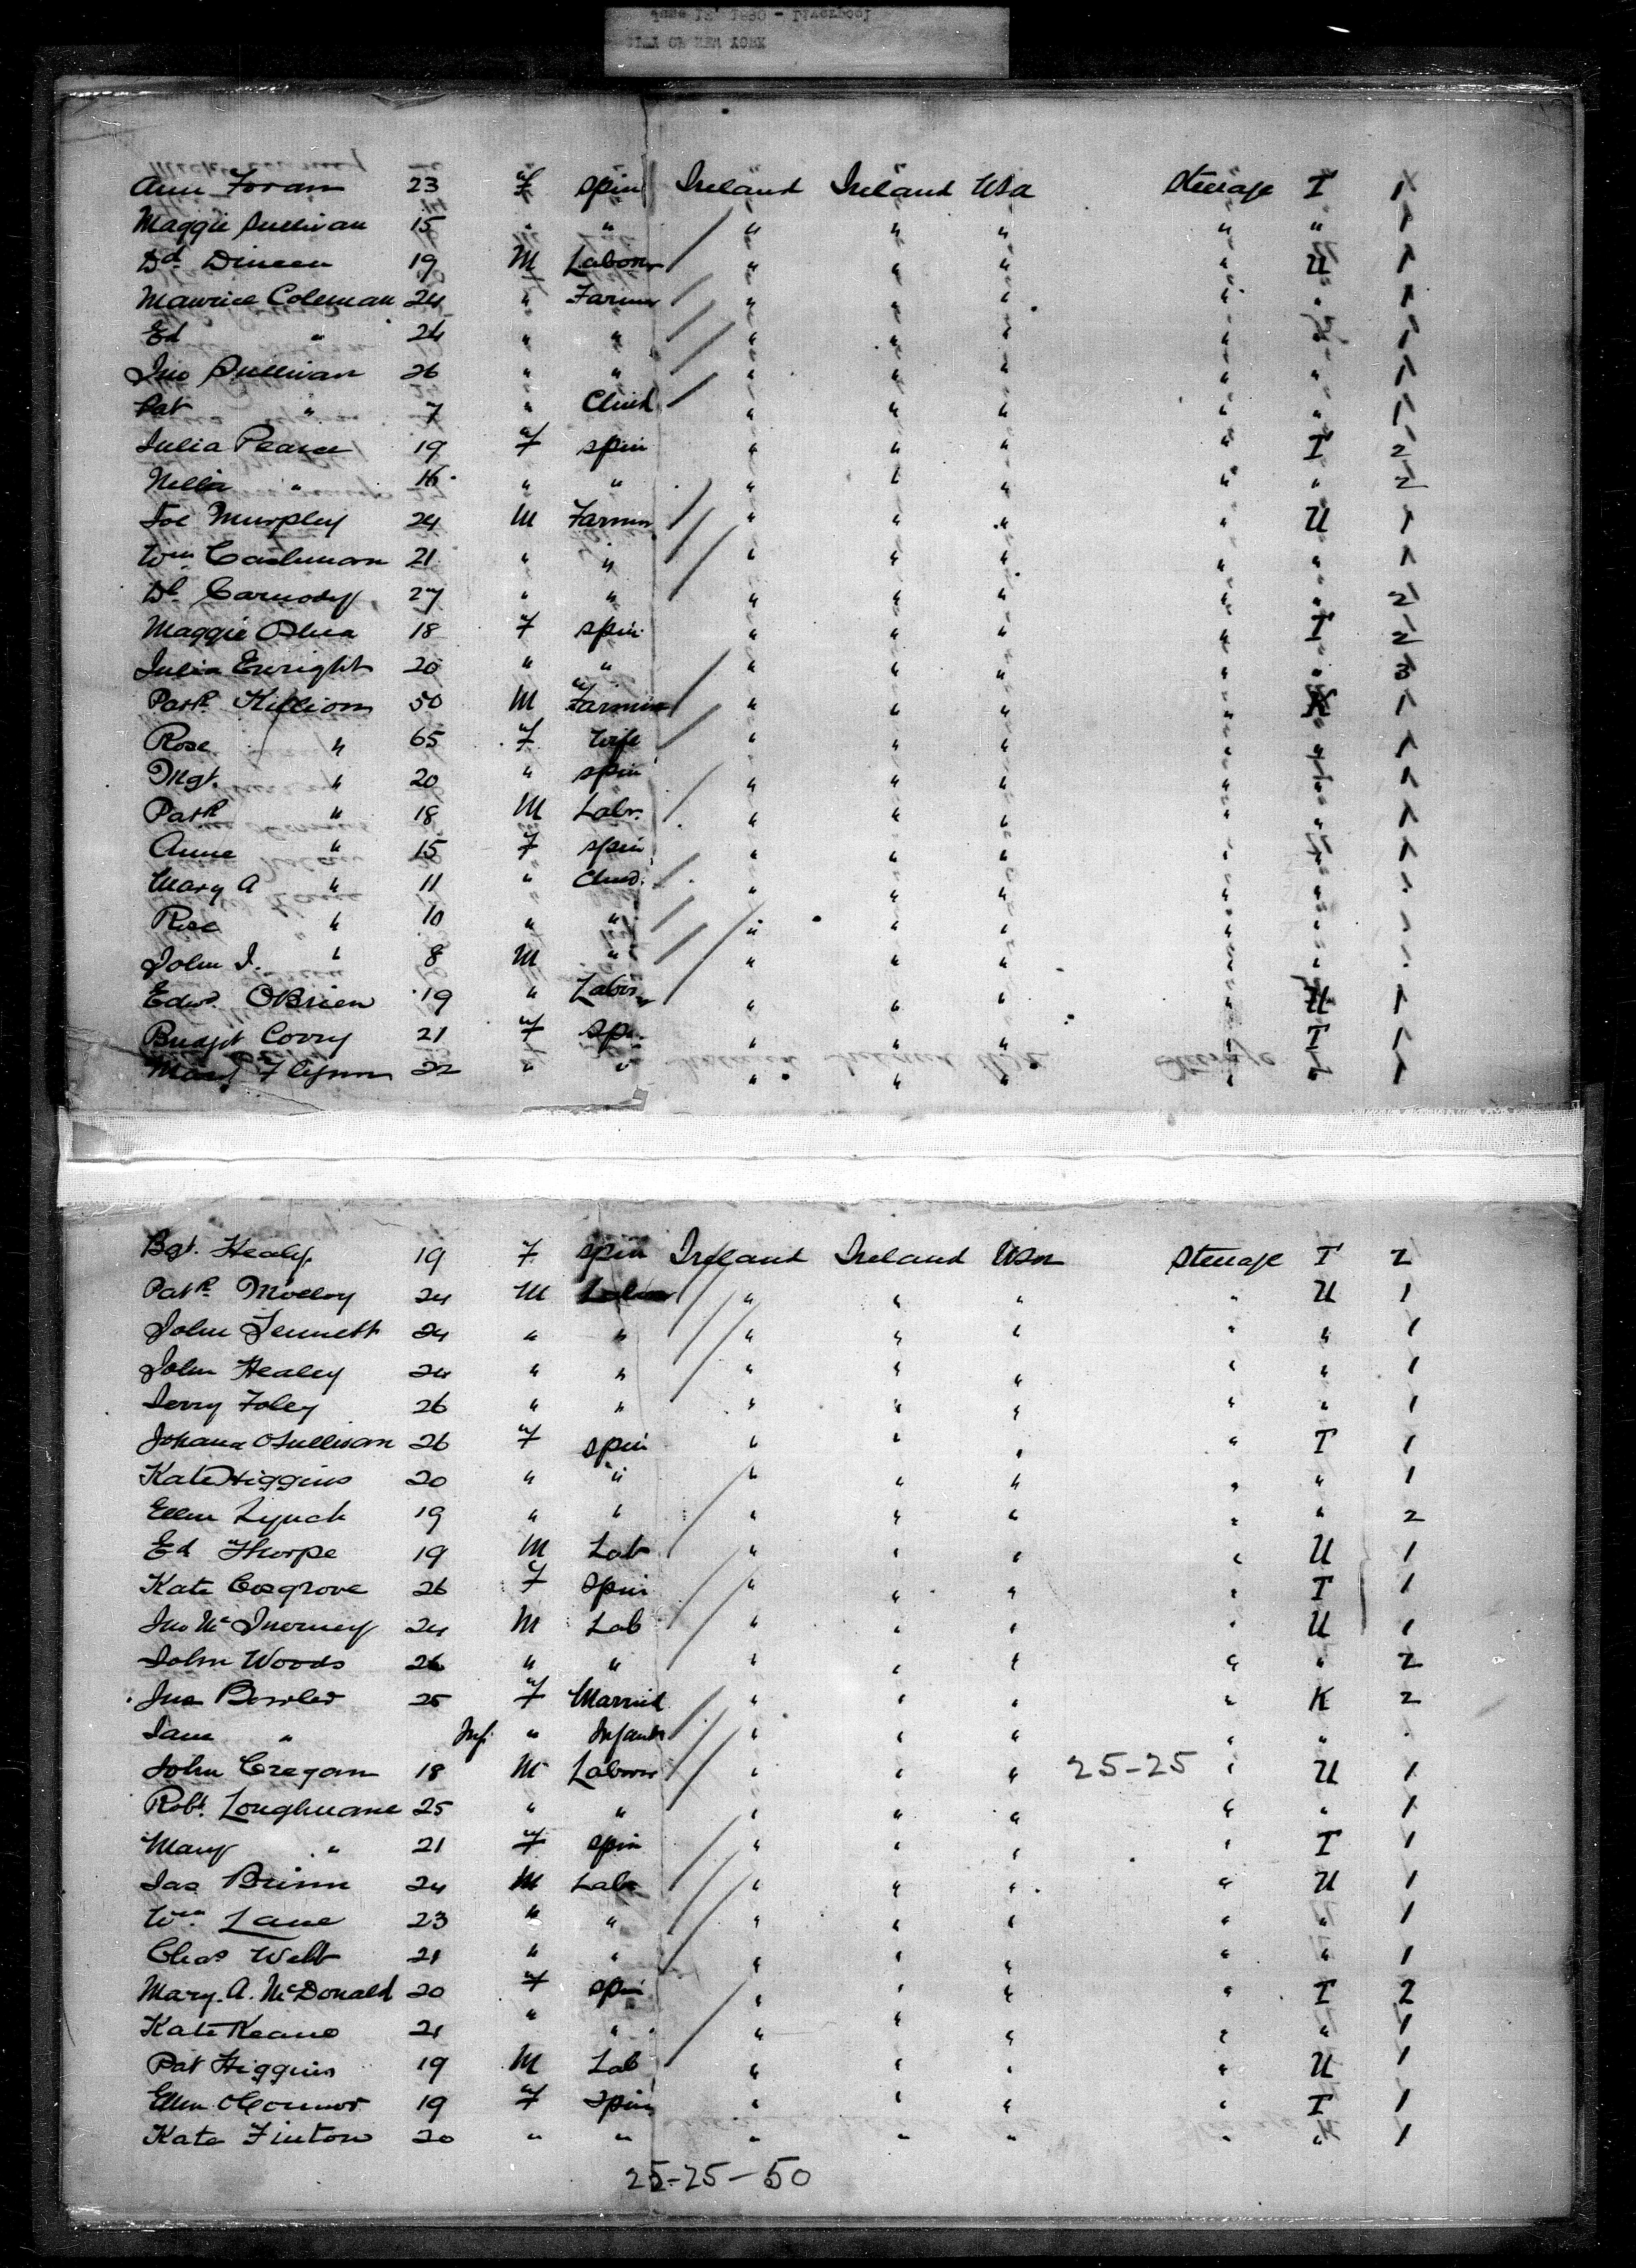 CITY OF NEW YORK
Ann Foran 23 F spin Ireland Ireland USA Steerage I 1
Maggie Sullivan 15 " " " " " " " 1
Dd Dineen 19 M Laborer " " " " U 1
Maurice Coleman 24 " Farmer " " " " " 1
Ed " 24 " " " " " " " 1
Jno Sullivan 26 " " " " " " " 1
Pat " 7 " Child " " " " " 1
Julia Pearce 19 F spin " " " " I 2
Nellie " 16 " " " " " " " 2
Joe Murphy 24 M Farmer " " " " U 1
Wm Cashman 21 " " " " " " " 1
Dl Carmody 27 " " " " " " " 2
Maggie OShea 18 F spin " " " " I 2
Julia Enright 20 " " " " " " " 3
Patk Killion 50 M Farmer " " " " K 1
Rose " 65 F Wife " " " " " 1
Mgt. " 20 " spin " " " " " 1
Patk " 18 M Labr. " " " " " 1
Anne " 15 F spin " " " " " 1
Mary A " 11 " Child " " " " "
Rose " 10 " " " " " " "
John J. " 8 M " " " " " "
Edwd. OBrien 19 " Labor " " " " U 1
Bridget Corry 21 F Sp. " " " " I 1
Mary Flynn 22 " " " " " " " 1
Bgt. Healy 19 F spin Ireland Ireland USA Steerage I 2
Patk Molloy 24 M Labor " " " " U 1
John Jennett 24 " " " " " " " 1
John Healey 24 " " " " " " " 1
Jerry Foley 26 " " " " " " " 1
Johana OSullivan 26 F spin " " " " I 1
Kate Higgins 20 " " " " " " " 1
Ellen Lynch 19 " " " " " " " 2
Ed Thorpe 19 M Lab " " " " U 1
Kate Cosgrove 26 F Spin " " " " I 1
Jno McInerney 24 M Lab " " " " U 1
John Woods 26 " " " " " " " 2
Bowler 25 F Married " " " " K 2
Jane " Inf. " Infant " " " " "
John Cregan 18 M Laborer " " " 25-25 " U 1
Robt. Loughnane 25 " " " " " " " 1
Mary " 21 F spin " " " " I 1
Jas Brinn 24 M Labr " " " " U 1
Wm Lane 23 " " " " " " " 1
Chas Webb 21 " " " " " " " 1
Mary. A. McDonald 20 F spin " " " " I 2
Kate Keane 21 " " " " " " " 1
Pat Higgins 19 M Lab " " " " U 1
Ellen OConnor 19 F Spin " " " " I 1
Kate Finton 20 " " " " " " " 1
25-25-50